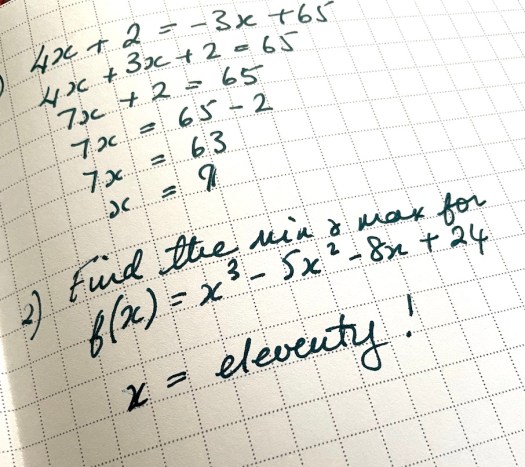 ) 4x + 2 = -3x + 65
4x + 3x + 2 = 65
7x + 2 = 65
7x = 65 - 2
7x = 63
x = 9
2) Find the min & max for
f(x) = x³ - 5x² - 8x + 24
x = eleventy!